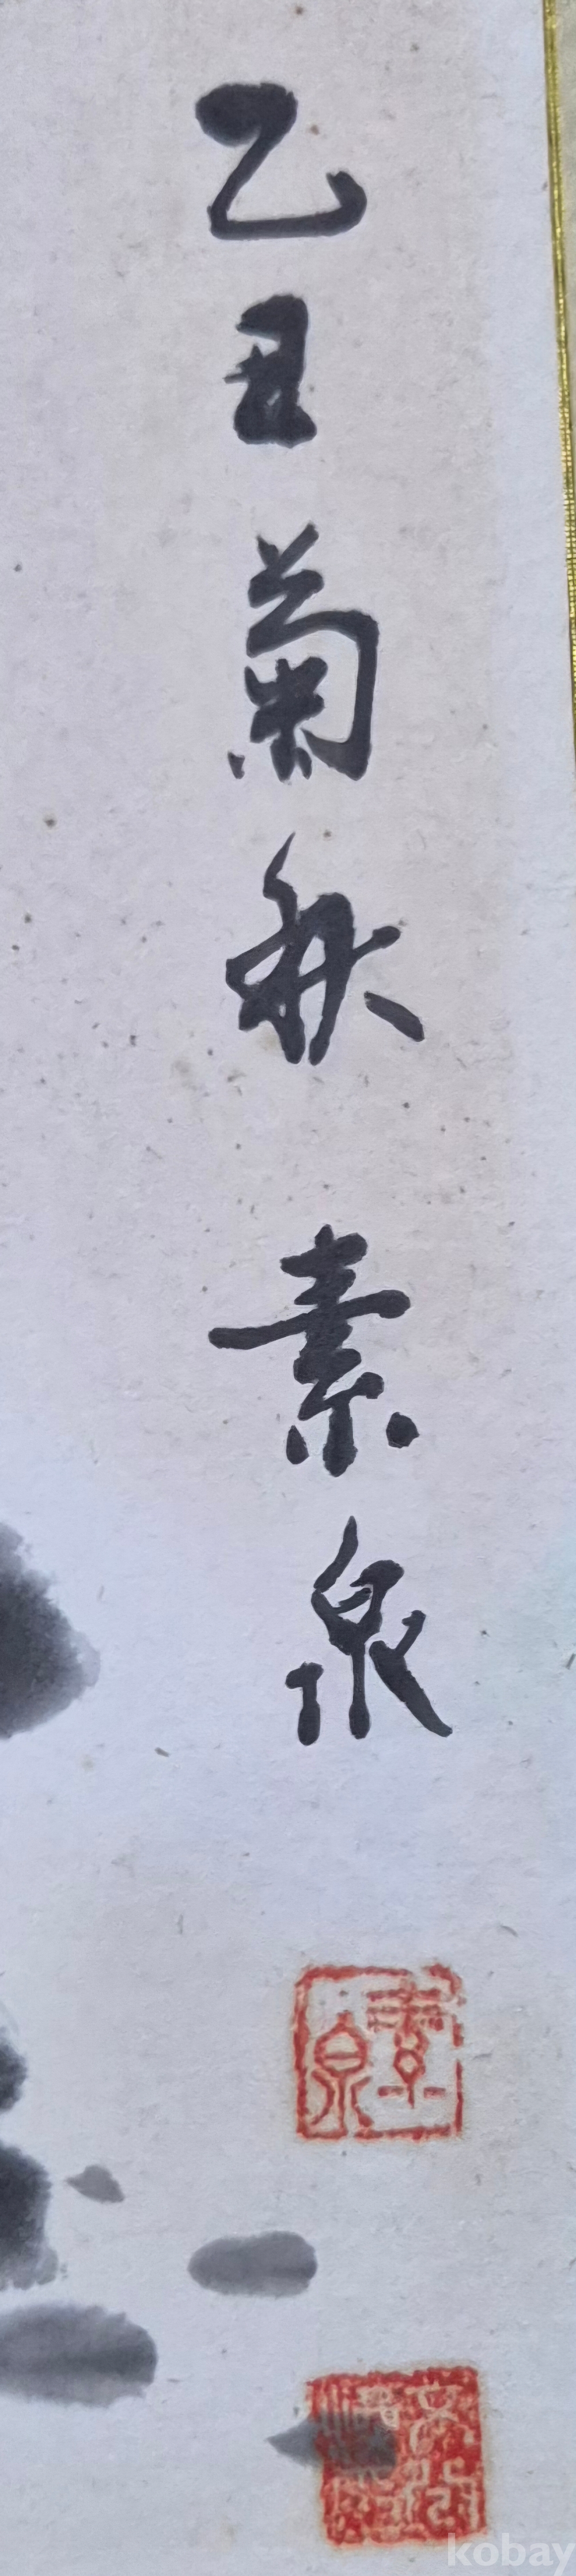 乙丑菊秋 素泉
素泉
kobay